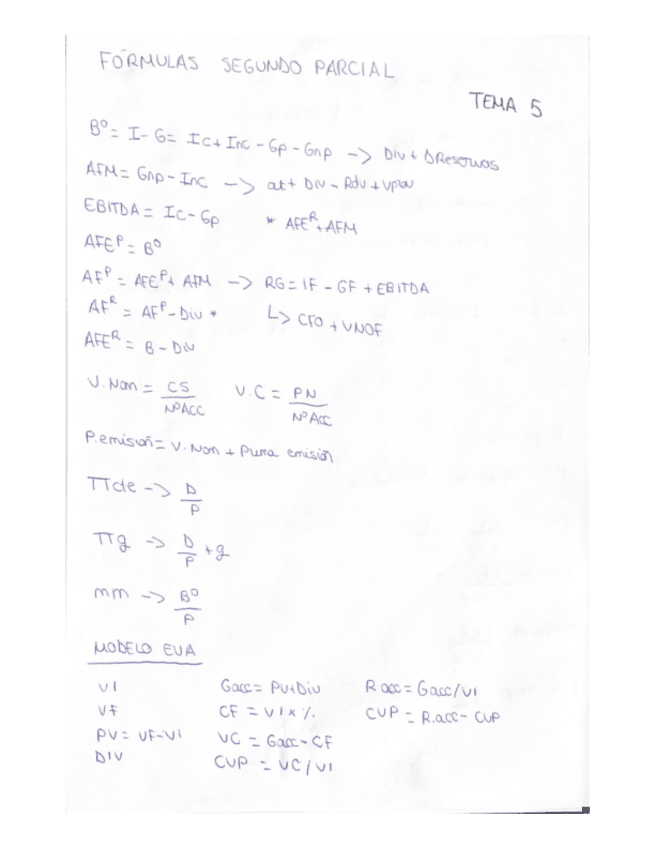 FÓRMULAS SEGUNDO PARCIAL
TEMA 5
Bº = I - G = Ic + Inc - Gp - Gnp -> Div + ΔReservas
AFM = Gnp - Inc -> at + Div - Rdv +
EBITDA = Ic - Gp * AFEᴿ + AFM
AFEᴾ = Bº
AFᴾ = AFEᴾ + AFM -> RG = IF - GF + EBITDA
AFᴿ = AFᴾ - Div * ↳ CFO + VNOF
AFEᴿ = B - Div
V. Nom = CS / NºACC V.C = PN / NºACC
P. emisión = V. Nom + Prima emisión
TTcte -> D / P
TTg -> D / P + g
mm -> Bº / P
MODELO EVA
VI Gacc = PV + Div Racc = Gacc/VI
VF CF = VI x % CVP = R.acc - CVP
PV = VF - VI VC = Gacc - CF
DIV CVP = VC / VI